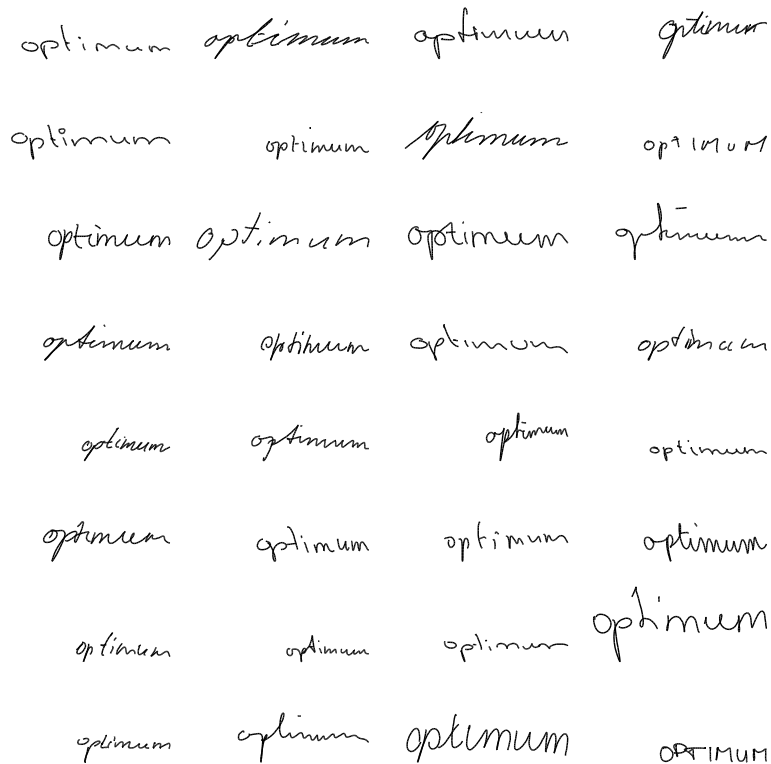 optimum optimum optimum optimum
optimum optimum optimum opTIMUM
optimum optimum optimum optimum
optimum optimum optimum optimum
optimum optimum optimum optimum
optimum optimum optimum optimum
optimum optimum optimum optimum
optimum optimum optimum OPTIMUM